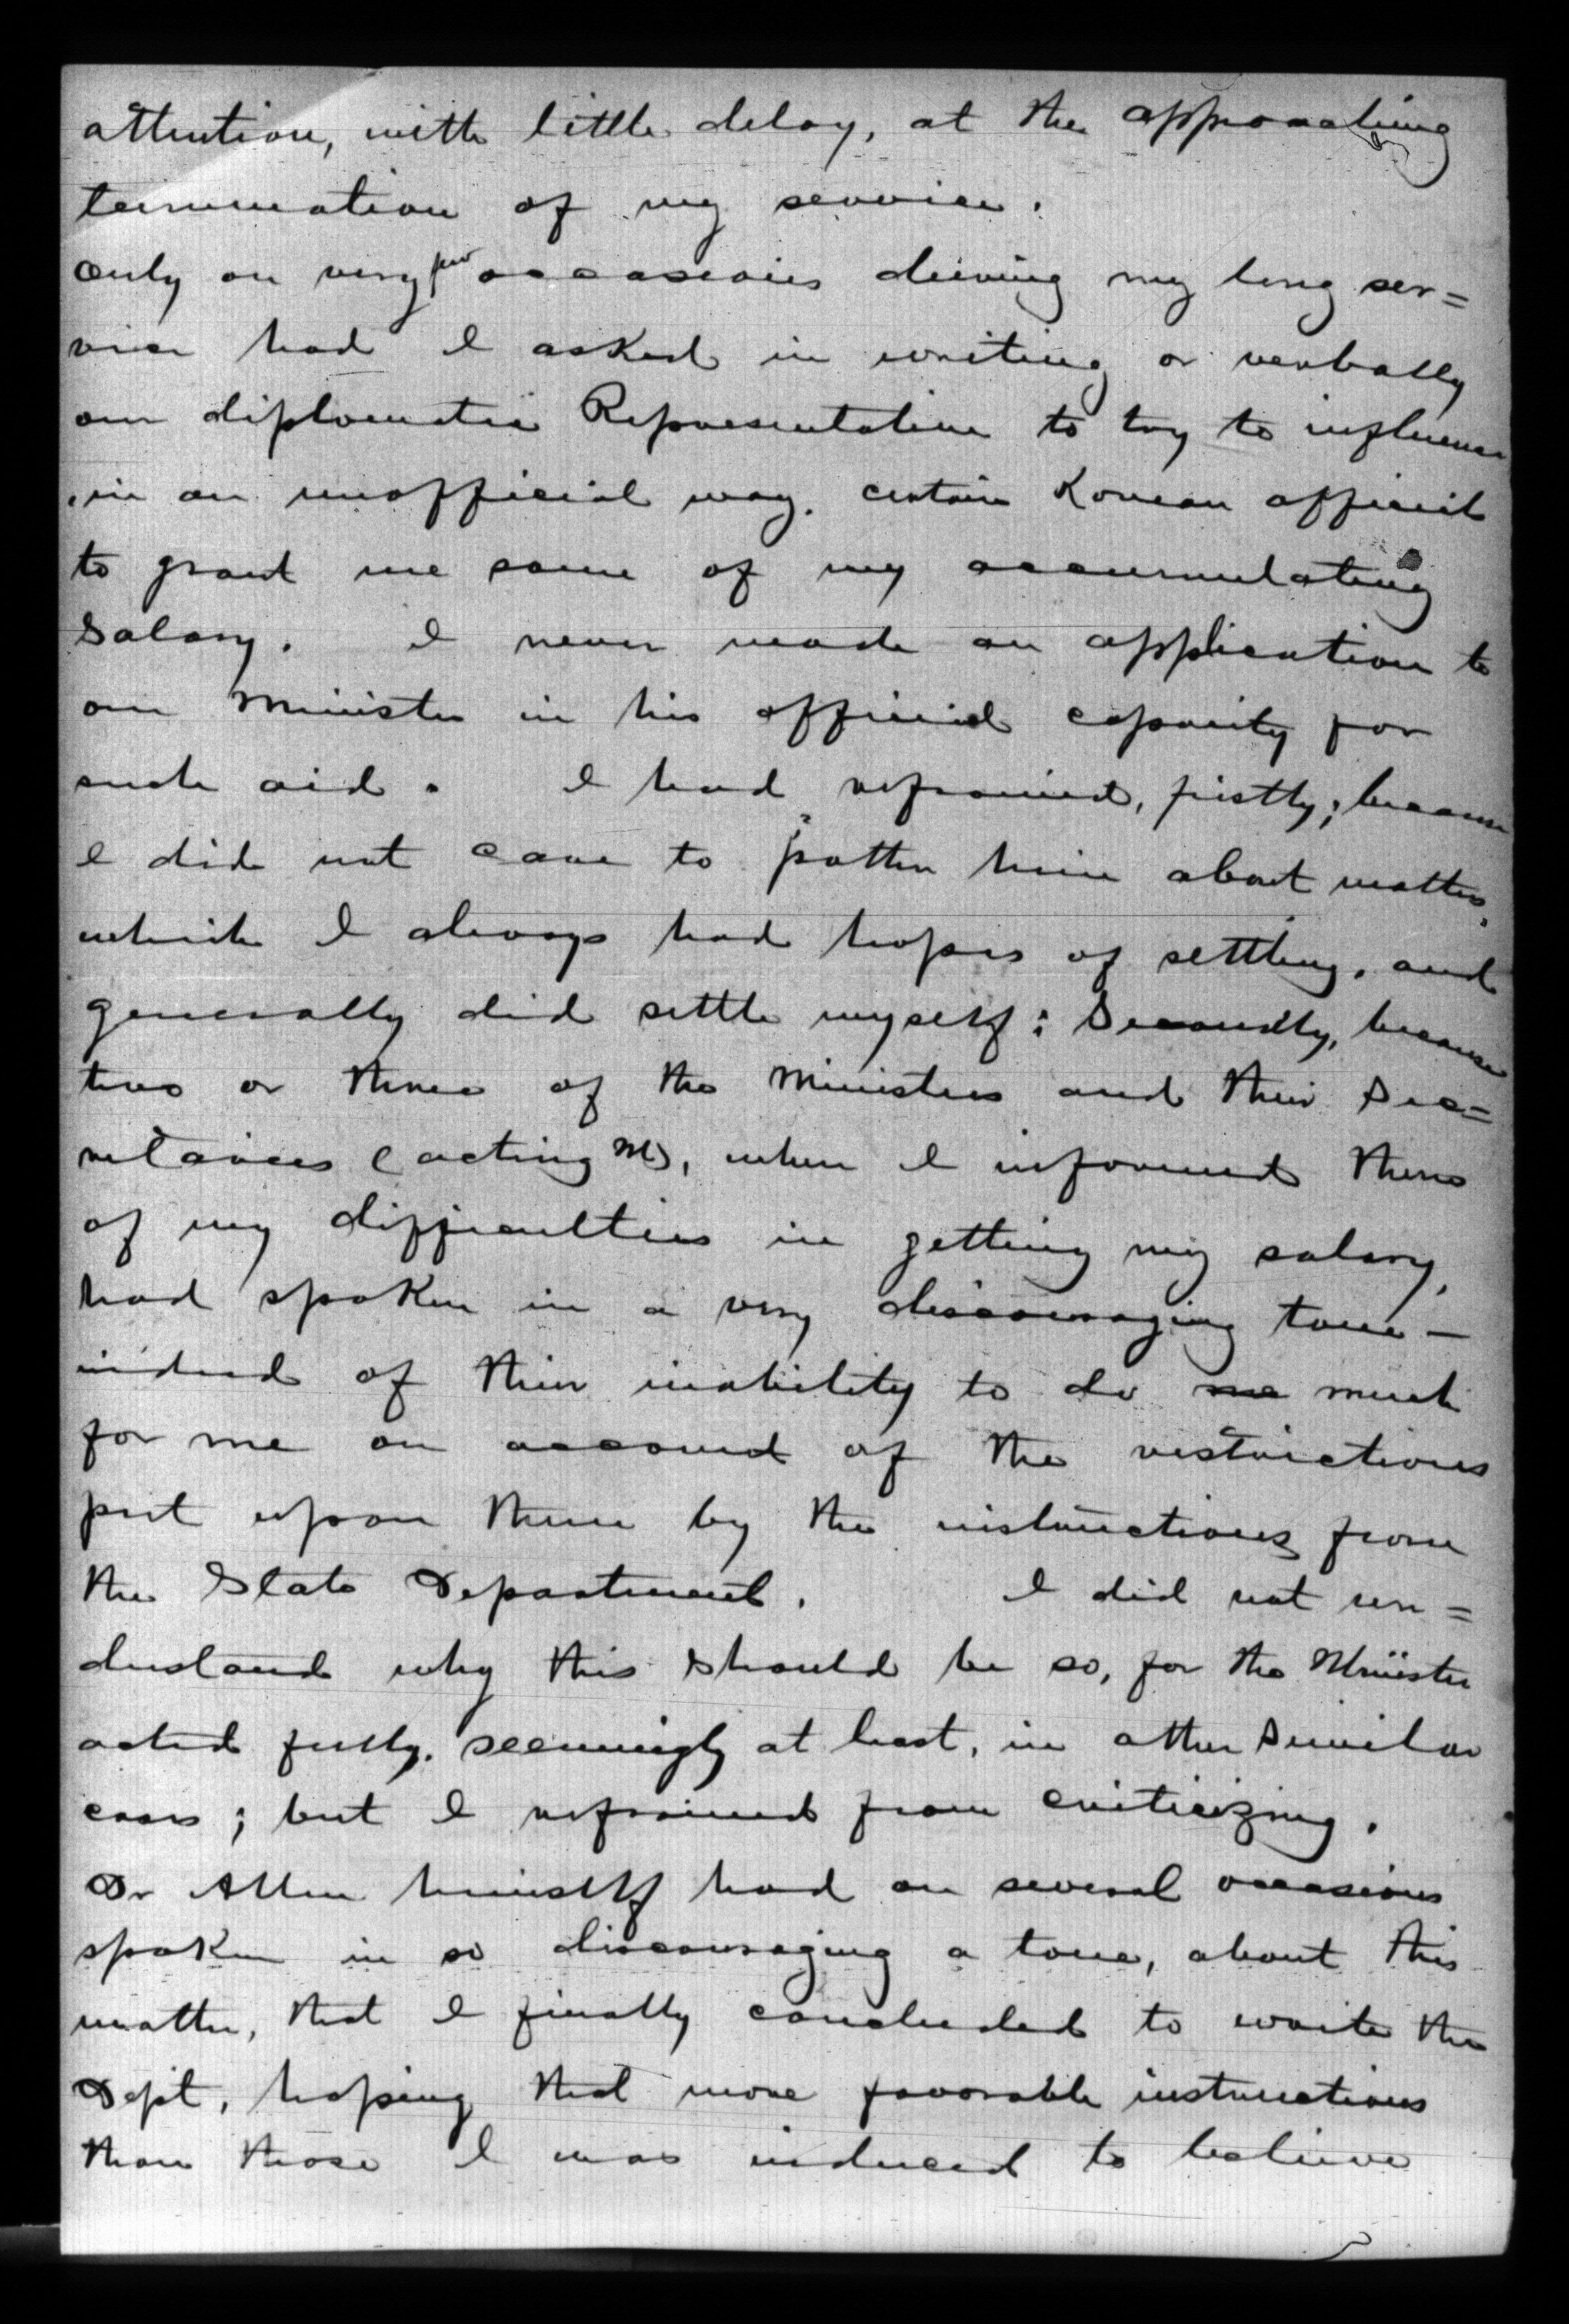 attention, with little delay, at the approaching
termination of my service.
Only on very few occasions during my long ser=
vice had I asked in writing or verbally
our diplomatic Representative to try to influence
in an unofficial way, certain Korean official
to grant me some of my accumulating
Salary. I never made an application to
our Minister in his official capacity for
such aid. I had refrained, firstly; because
I did not care to him about matters,
which I always had hopes of settling, and
generally did settle myself; Secondly, because
two or three of the Ministers and their Sec=
retaries (acting M), when I informed them
of my difficulties in getting my salary,
had spoken in a very discouraging tone—
indeed of their inability to do me much
for me on account of the restrictions
put upon them by the instructions from
the State Department. I did not un=
derstand why this should be so, for the Minister
acted fully, seemingly at least, in other similar
cases; but I refrained from criticizing.
Dr Allen himself had on several occasions
spoken in so discouraging a tone, about this
matter, that I finally concluded to write the
Dept, hoping that more favorable instructions
than those I was induced to believe